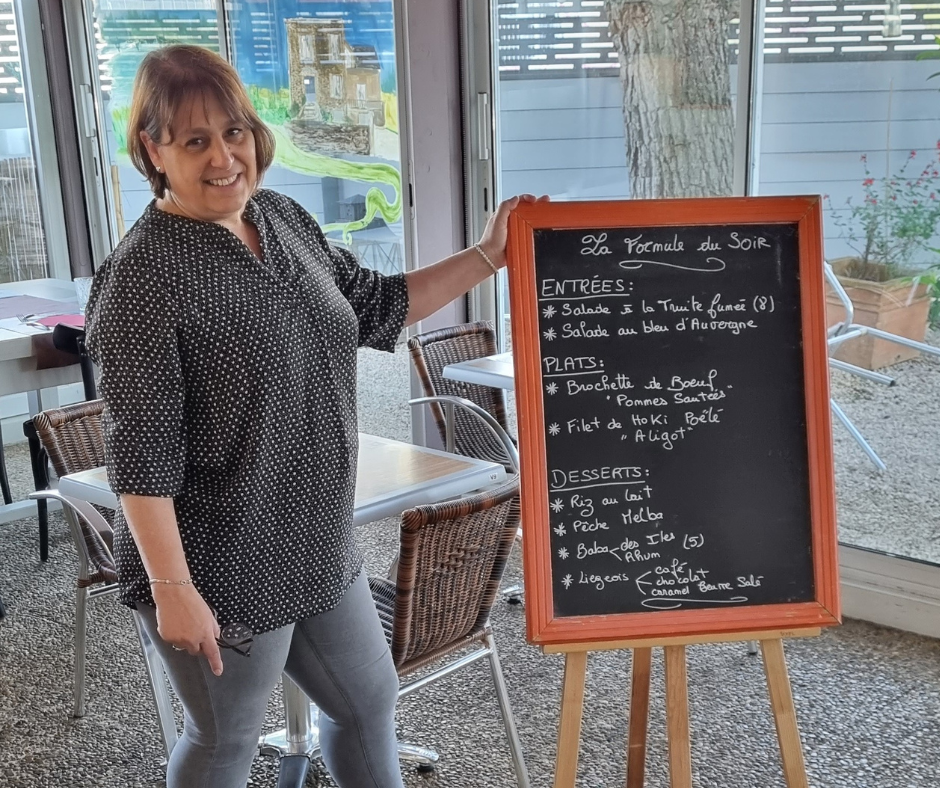 La Formule du SOIR
ENTRÉES:
* Salade à la Truite fumée (8)
* Salade au bleu d'Auvergne
PLATS:
* Brochette de Boeuf
"Pommes Sautées"
* Filet de Hoki Pôélé
"Aligot"
DESSERTS:
* Riz au lait
* Pêche Melba
* Baba des Iles (5)
Rhum
* Liegeois café
chocolat
caramel Beurre Salé